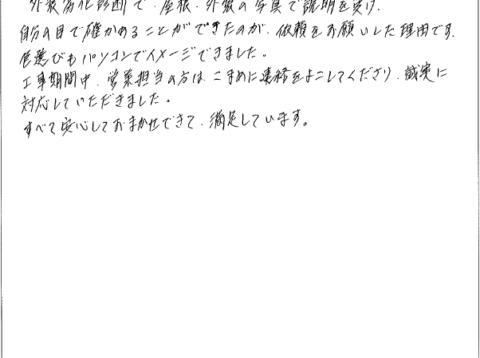 外装劣化診断で、屋根・外壁の写真で説明を受け、
自分の目で確かめることができたのが、依頼をお願いした理由です。
色選びもパソコンでイメージできました。
工事期間中、営業担当の方は、こまめに連絡をよこしてくださり、誠実に
対応していただきました。
すべて安心しておまかせできて、満足しています。